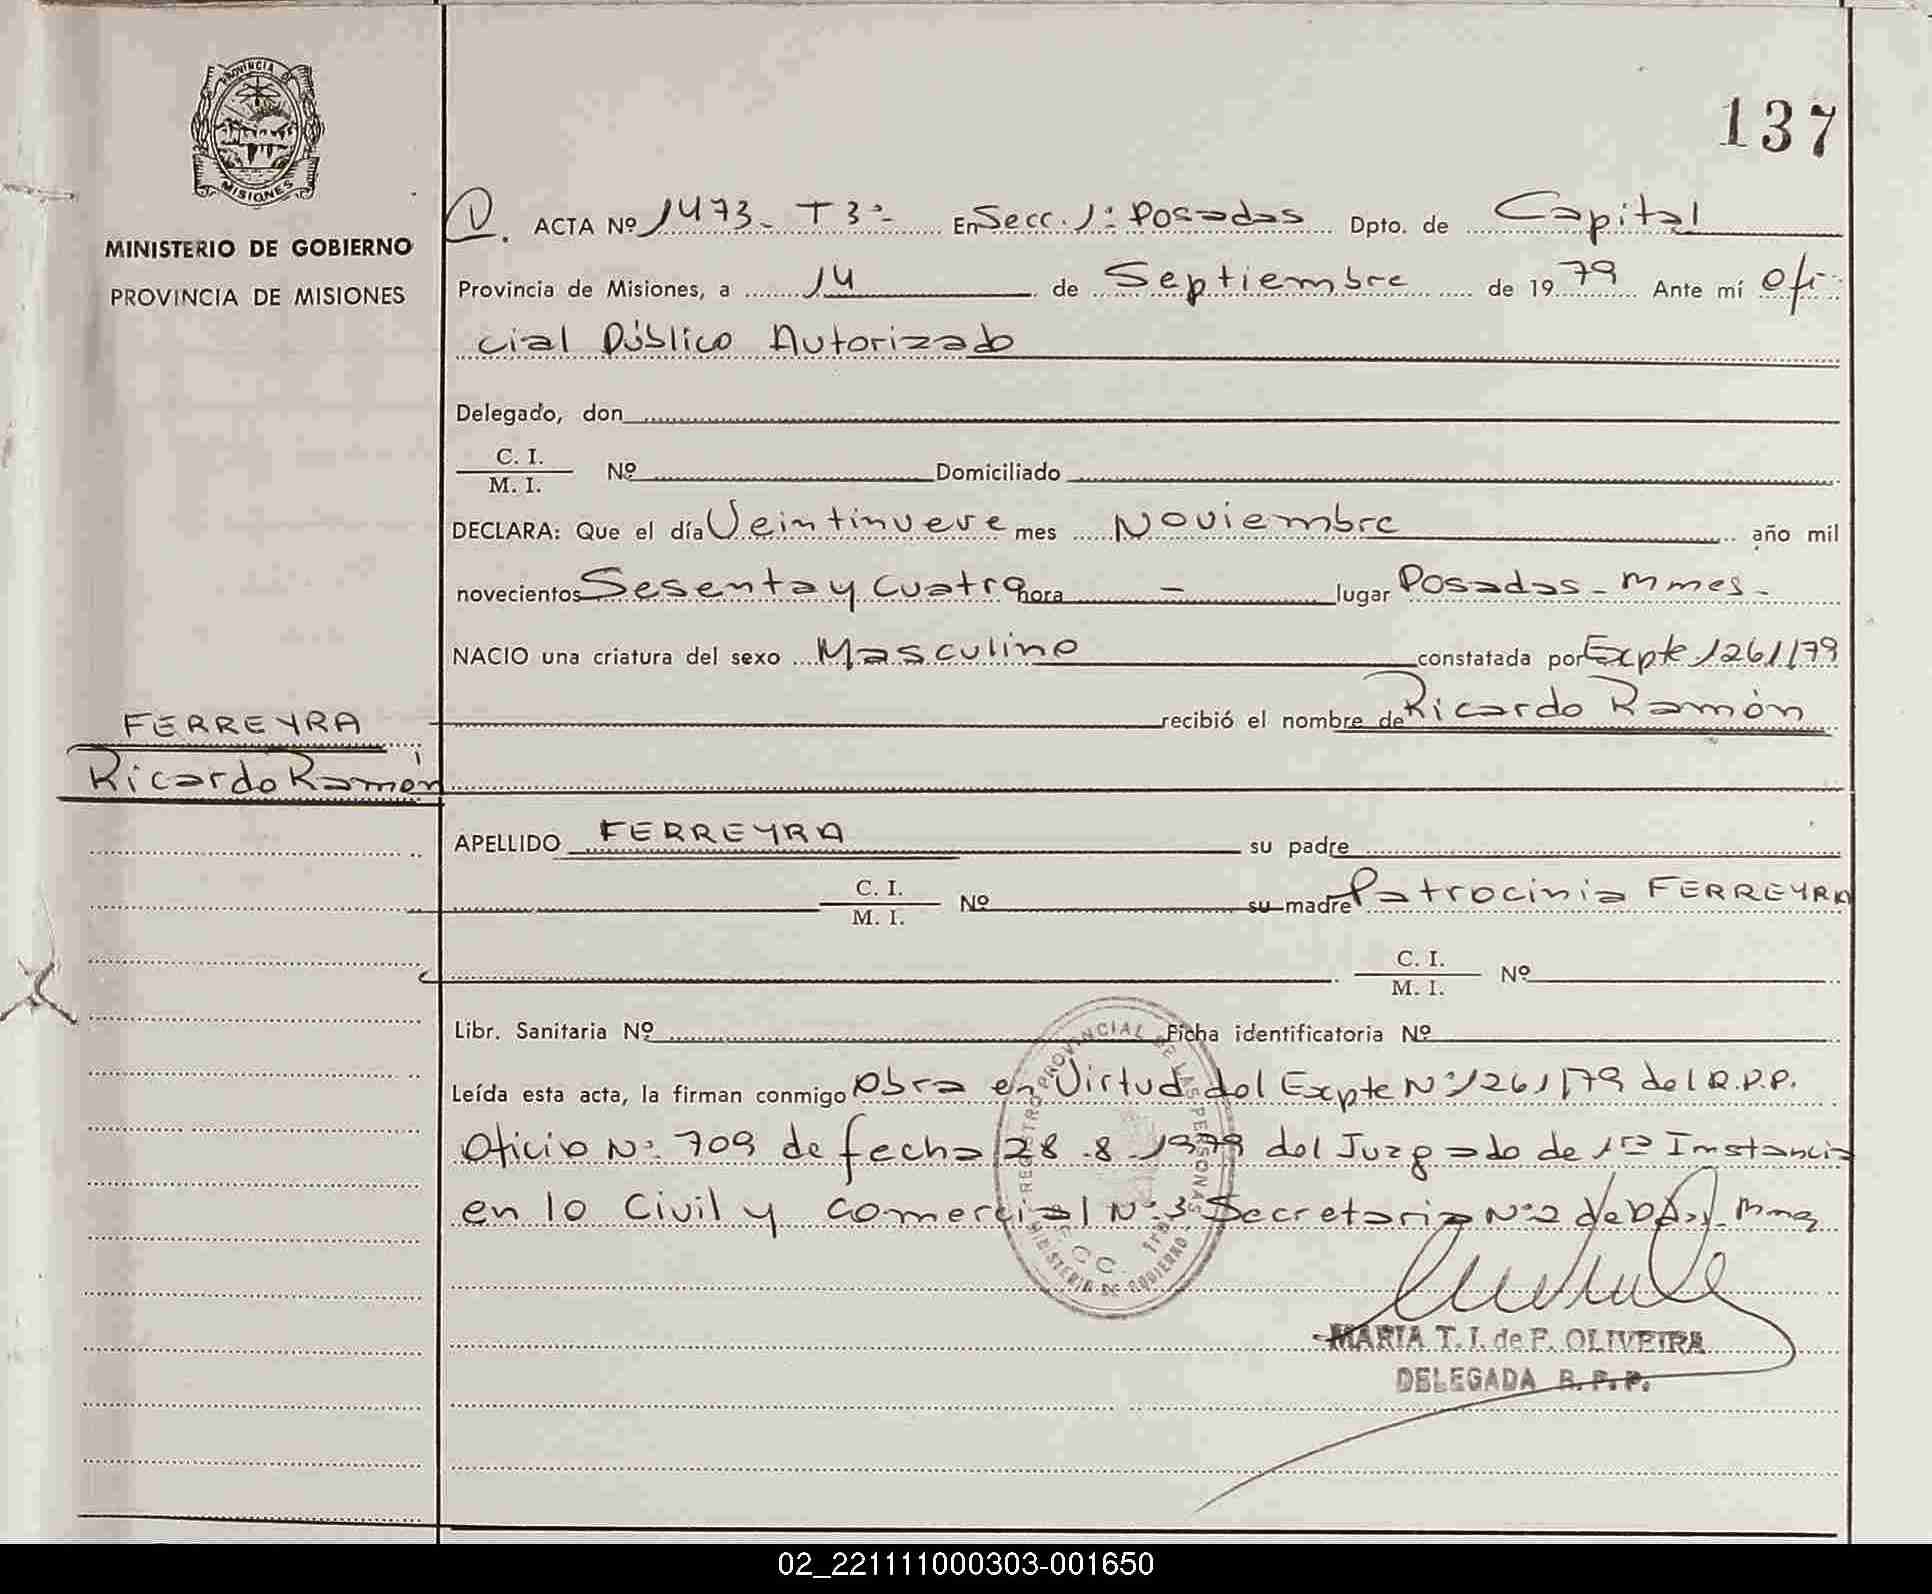 PROVINCIA DE
MISIONES
MINISTERIO DE GOBIERNO
PROVINCIA DE MISIONES
137
ACTA Nº 1473- T3º- En Secc. 1º Posadas Dpto. de Capital
Provincia de Misiones, a 14 de Septiembre de 1979 Ante mí Ofi-
cial Público Autorizado
Delegado, don
C. I.
M. I. Nº Domiciliado
DECLARA: Que el día Veintinueve mes Noviembre año mil
novecientos Sesenta y Cuatro hora - lugar Posadas - Mnes-
NACIO una criatura del sexo Masculino constatada por Expte 1261/79
recibió el nombre de Ricardo Ramón
FERREYRA
Ricardo Ramón
APELLIDO FERREYRA su padre
C. I.
M. I. Nº su madre Patrocinia FERREYRA
C. I.
M. I. Nº
Libr. Sanitaria Nº Ficha identificatoria Nº
Leída esta acta, la firman conmigo Obra en Virtud del Expte Nº 1261/79 del R.P.P.
Oficio Nº 709 de fecha 28.8.1979 del Juzgado de 1ra Instancia
en lo Civil y Comercial Nº 3 Secretaria Nº 2 de
REGISTRO PROVINCIAL DE LAS PERSONAS
MINISTERIO DE GOBIERNO
SECC. 1ra
MARIA T. I. de F. OLIVEIRA
DELEGADA R. P. P.
02_221111000303-001650